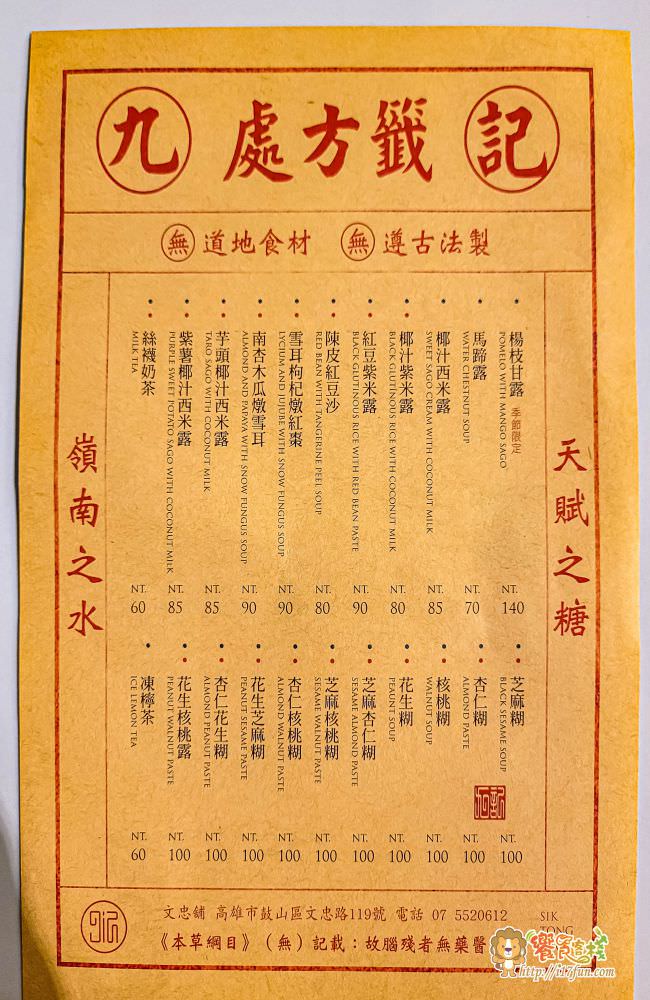 九 處方籤 記
無 道地食材 無 遵古法製
天賦之糖
楊枝甘露 季節限定
POMELO WITH MANGO SAGO
NT.
140
馬蹄露
WATER CHESTNUT SOUP
NT.
70
椰汁西米露
SWEET SAGO CREAM WITH COCONUT MILK
NT.
85
椰汁紫米露
BLACK GLUTINOUS RICE WITH COCONUT MILK
NT.
80
紅豆紫米露
BLACK GLUTINOUS RICE WITH RED BEAN PASTE
NT.
90
陳皮紅豆沙
RED BEAN WITH TANGERINE PEEL SOUP
NT.
80
雪耳枸杞燉紅棗
LYCIUM AND JUJUBE WITH SNOW FUNGUS SOUP
NT.
90
南杏木瓜燉雪耳
ALMOND AND PAPAYA WITH SNOW FUNGUS SOUP
NT.
90
芋頭椰汁西米露
TARO SAGO WITH COCONUT MILK
NT.
85
紫薯椰汁西米露
PURPLE SWEET POTATO SAGO WITH COCONUT MILK
NT.
85
絲襪奶茶
MILK TEA
NT.
60
芝麻糊
BLACK SESAME SOUP
NT.
100
杏仁糊
ALMOND PASTE
NT.
100
核桃糊
WALNUT SOUP
NT.
100
花生糊
PEAUNT SOUP
NT.
100
芝麻杏仁糊
SESAME ALMOND PASTE
NT.
100
芝麻核桃糊
SESAME WALNUT PASTE
NT.
100
杏仁核桃糊
ALMOND WALNUT PASTE
NT.
100
花生芝麻糊
PEANUT SESAME PASTE
NT.
100
杏仁花生糊
ALMOND PEANUT PASTE
NT.
100
花生核桃露
PEANUT WALNUT PASTE
NT.
100
凍檸茶
ICE LEMON TEA
NT.
60
嶺南之水
文忠舖 高雄市鼓山區文忠路119號 電話 07 5520612
《本草綱目》（無）記載：故腦殘者無藥醫
SIK
TONG
http://i17fun.com/